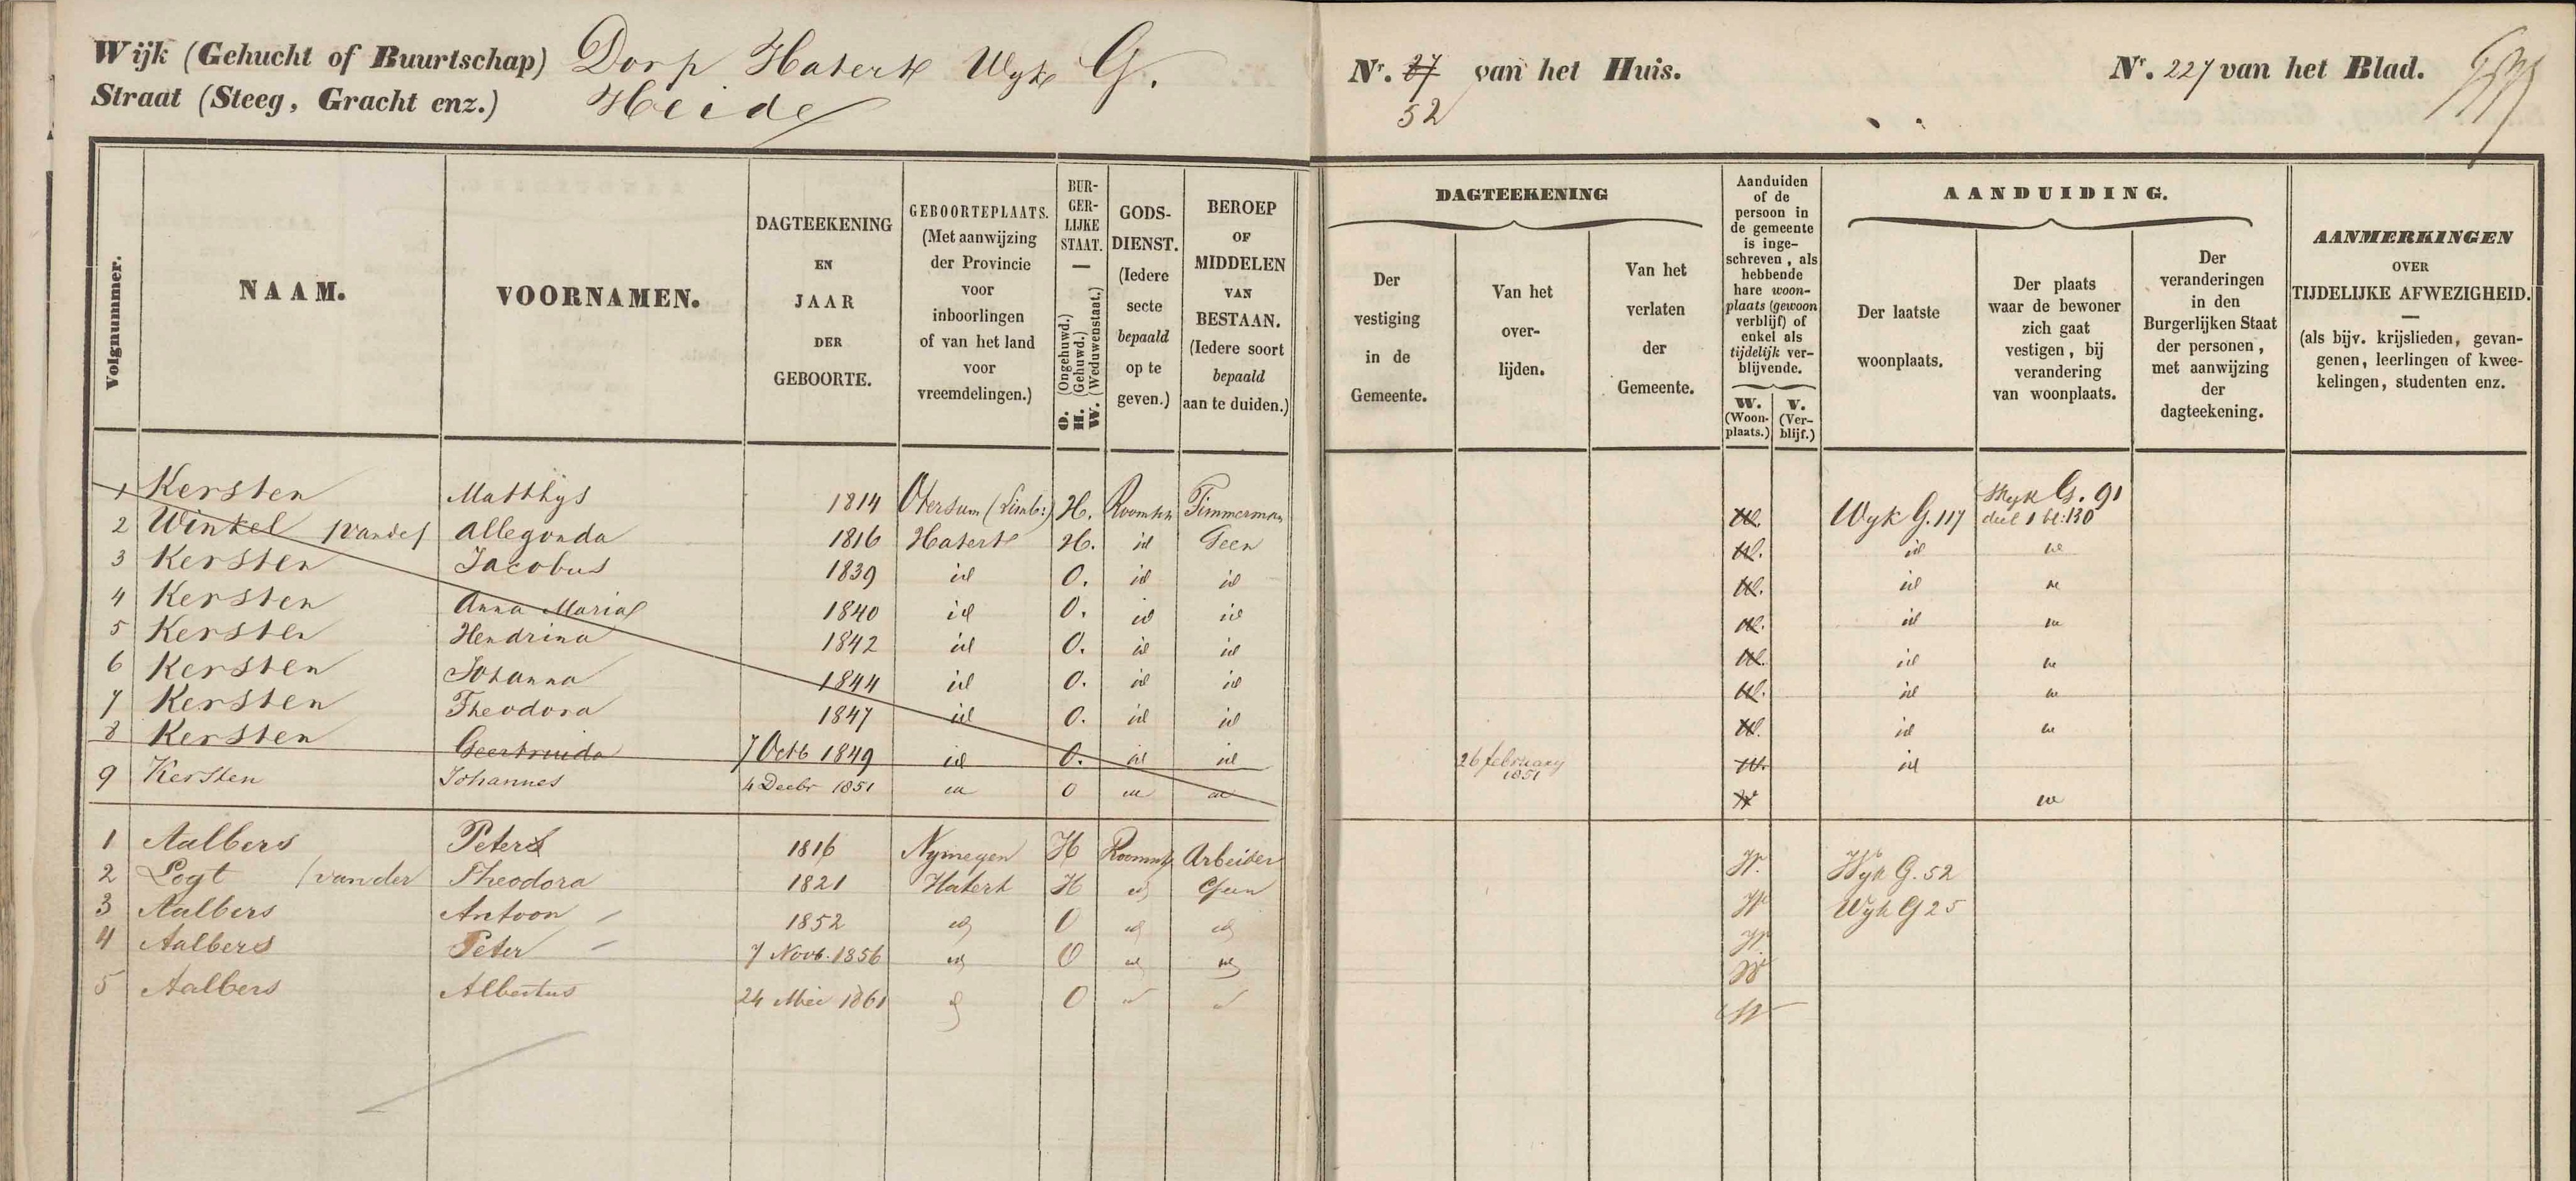 Wijk (Gehucht of Buurtschap) Dorp Hatert Wyk G.
Straat (Steeg, Gracht enz.) Heide
Nr. 27 van het Huis.
52
Nr. 227 van het Blad.
Volgnummer.
NAAM.
VOORNAMEN.
DAGTEEKENING
EN
JAAR
DER
GEBOORTE.
GEBOORTEPLAATS.
(Met aanwijzing
der Provincie
voor
inboorlingen
of van het land
voor
vreemdelingen.)
BUR-
GER-
LIJKE
STAAT.
O. (Ongehuwd.)
H. (Gehuwd.)
W. (Weduwenstaat.)
GODS-
DIENST.
(Iedere
secte
bepaald
op te
geven.)
BEROEP
OF
MIDDELEN
VAN
BESTAAN.
(Iedere soort
bepaald
aan te duiden.)
DAGTEEKENING
Der
vestiging
in de
Gemeente.
Van het
over-
lijden.
Van het
verlaten
der
Gemeente.
Aanduiden
of de
persoon in
de gemeente
is inge-
schreven, als
hebbende
hare woon-
plaats (gewoon
verblijf) of
enkel als
tijdelijk ver-
blijvende.
W.
(Woon-
plaats.)
V.
(Ver-
blijf.)
AANDUIDING.
Der laatste
woonplaats.
Der plaats
waar de bewoner
zich gaat
vestigen, bij
verandering
van woonplaats.
Der
veranderingen
in den
Burgerlijken Staat
der personen,
met aanwijzing
der
dagteekening.
AANMERKINGEN
OVER
TIJDELIJKE AFWEZIGHEID.
(als bijv. krijslieden, gevan-
genen, leerlingen of kwee-
kelingen, studenten enz.
1 Kersten Matthys 1814 Otersum (Limb:) H. Roomsch Timmerman W. Wyk G. 117 Wyk G. 91
deel 1 bl: 130
2 Winkel /van de/ Allegonda 1816 Hatert H. id Geen W. id
3 Kersten Jacobus 1839 id O. id id W. id
4 Kersten Anna Maria 1840 id O. id id W. id
5 Kersten Hendrina 1842 id O. id id W. id
6 Kersten Johanna 1844 id O. id id W. id
7 Kersten Theodora 1847 id O. id id W. id
8 Kersten Geertruida 7 Octb 1849 id O. id id 26 february
1851 W. id
9 Kersten Johannes 4 Decbr 1851 O W
1 Aalbers Peter 1816 Nymegen H Roomsch Arbeider W. Wyk G. 52
2 Logt /van der Theodora 1821 Hatert H id Geen W Wyk G 25
3 Aalbers Antoon 1852 id O id id W.
4 Aalbers Peter 7 Novb. 1856 id O id id W
5 Aalbers Albertus 24 Mei 1861 O W